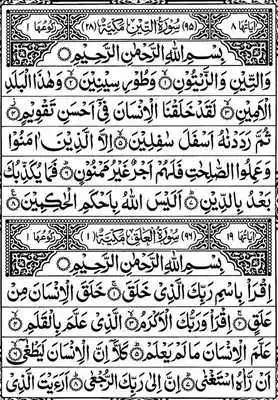 اٰیاتها ٨ (٩٥) سُوْرَةُ التِّیْنِ مَكِّیَّةٌ (٢٨) رکوعها ١
بِسْمِ اللّٰهِ الرَّحْمٰنِ الرَّحِیْمِ
وَالتِّیْنِ وَالزَّیْتُوْنِ ۙ‏﴿١﴾ وَطُوْرِ سِیْنِیْنَ ۙ‏﴿٢﴾ وَهٰذَا الْبَلَدِ
الْاَمِیْنِ ۙ‏﴿٣﴾ لَقَدْ خَلَقْنَا الْاِنْسَانَ فِیْۤ اَحْسَنِ تَقْوِیْمٍ ؗ‏﴿٤﴾
ثُمَّ رَدَدْنٰهُ اَسْفَلَ سٰفِلِیْنَ ۙ‏﴿٥﴾ اِلَّا الَّذِیْنَ اٰمَنُوْا
وَعَمِلُوا الصّٰلِحٰتِ فَلَهُمْ اَجْرٌ غَیْرُ مَمْنُوْنٍ ؕ‏﴿٦﴾ فَمَا یُكَذِّبُكَ
بَعْدُ بِالدِّیْنِ ؕ‏﴿٧﴾ اَلَیْسَ اللّٰهُ بِاَحْكَمِ الْحٰكِمِیْنَ ‏﴿٨﴾
اٰیاتها ١٩ (٩٦) سُوْرَةُ الْعَلَقِ مَكِّیَّةٌ (١) رکوعها ١
بِسْمِ اللّٰهِ الرَّحْمٰنِ الرَّحِیْمِ
اِقْرَاْ بِاسْمِ رَبِّكَ الَّذِیْ خَلَقَ ۚ‏﴿١﴾ خَلَقَ الْاِنْسَانَ مِنْ
عَلَقٍ ۚ‏﴿٢﴾ اِقْرَاْ وَرَبُّكَ الْاَكْرَمُ ۙ‏﴿٣﴾ الَّذِیْ عَلَّمَ بِالْقَلَمِ ۙ‏﴿٤﴾
عَلَّمَ الْاِنْسَانَ مَا لَمْ یَعْلَمْ ؕ‏﴿٥﴾ كَلَّاۤ اِنَّ الْاِنْسَانَ لَیَطْغٰۤی ۙ‏﴿٦﴾
اَنْ رَّاٰهُ اسْتَغْنٰی ؕ‏﴿٧﴾ اِنَّ اِلٰی رَبِّكَ الرُّجْعٰی ؕ‏﴿٨﴾ اَرَءَیْتَ الَّذِیْ